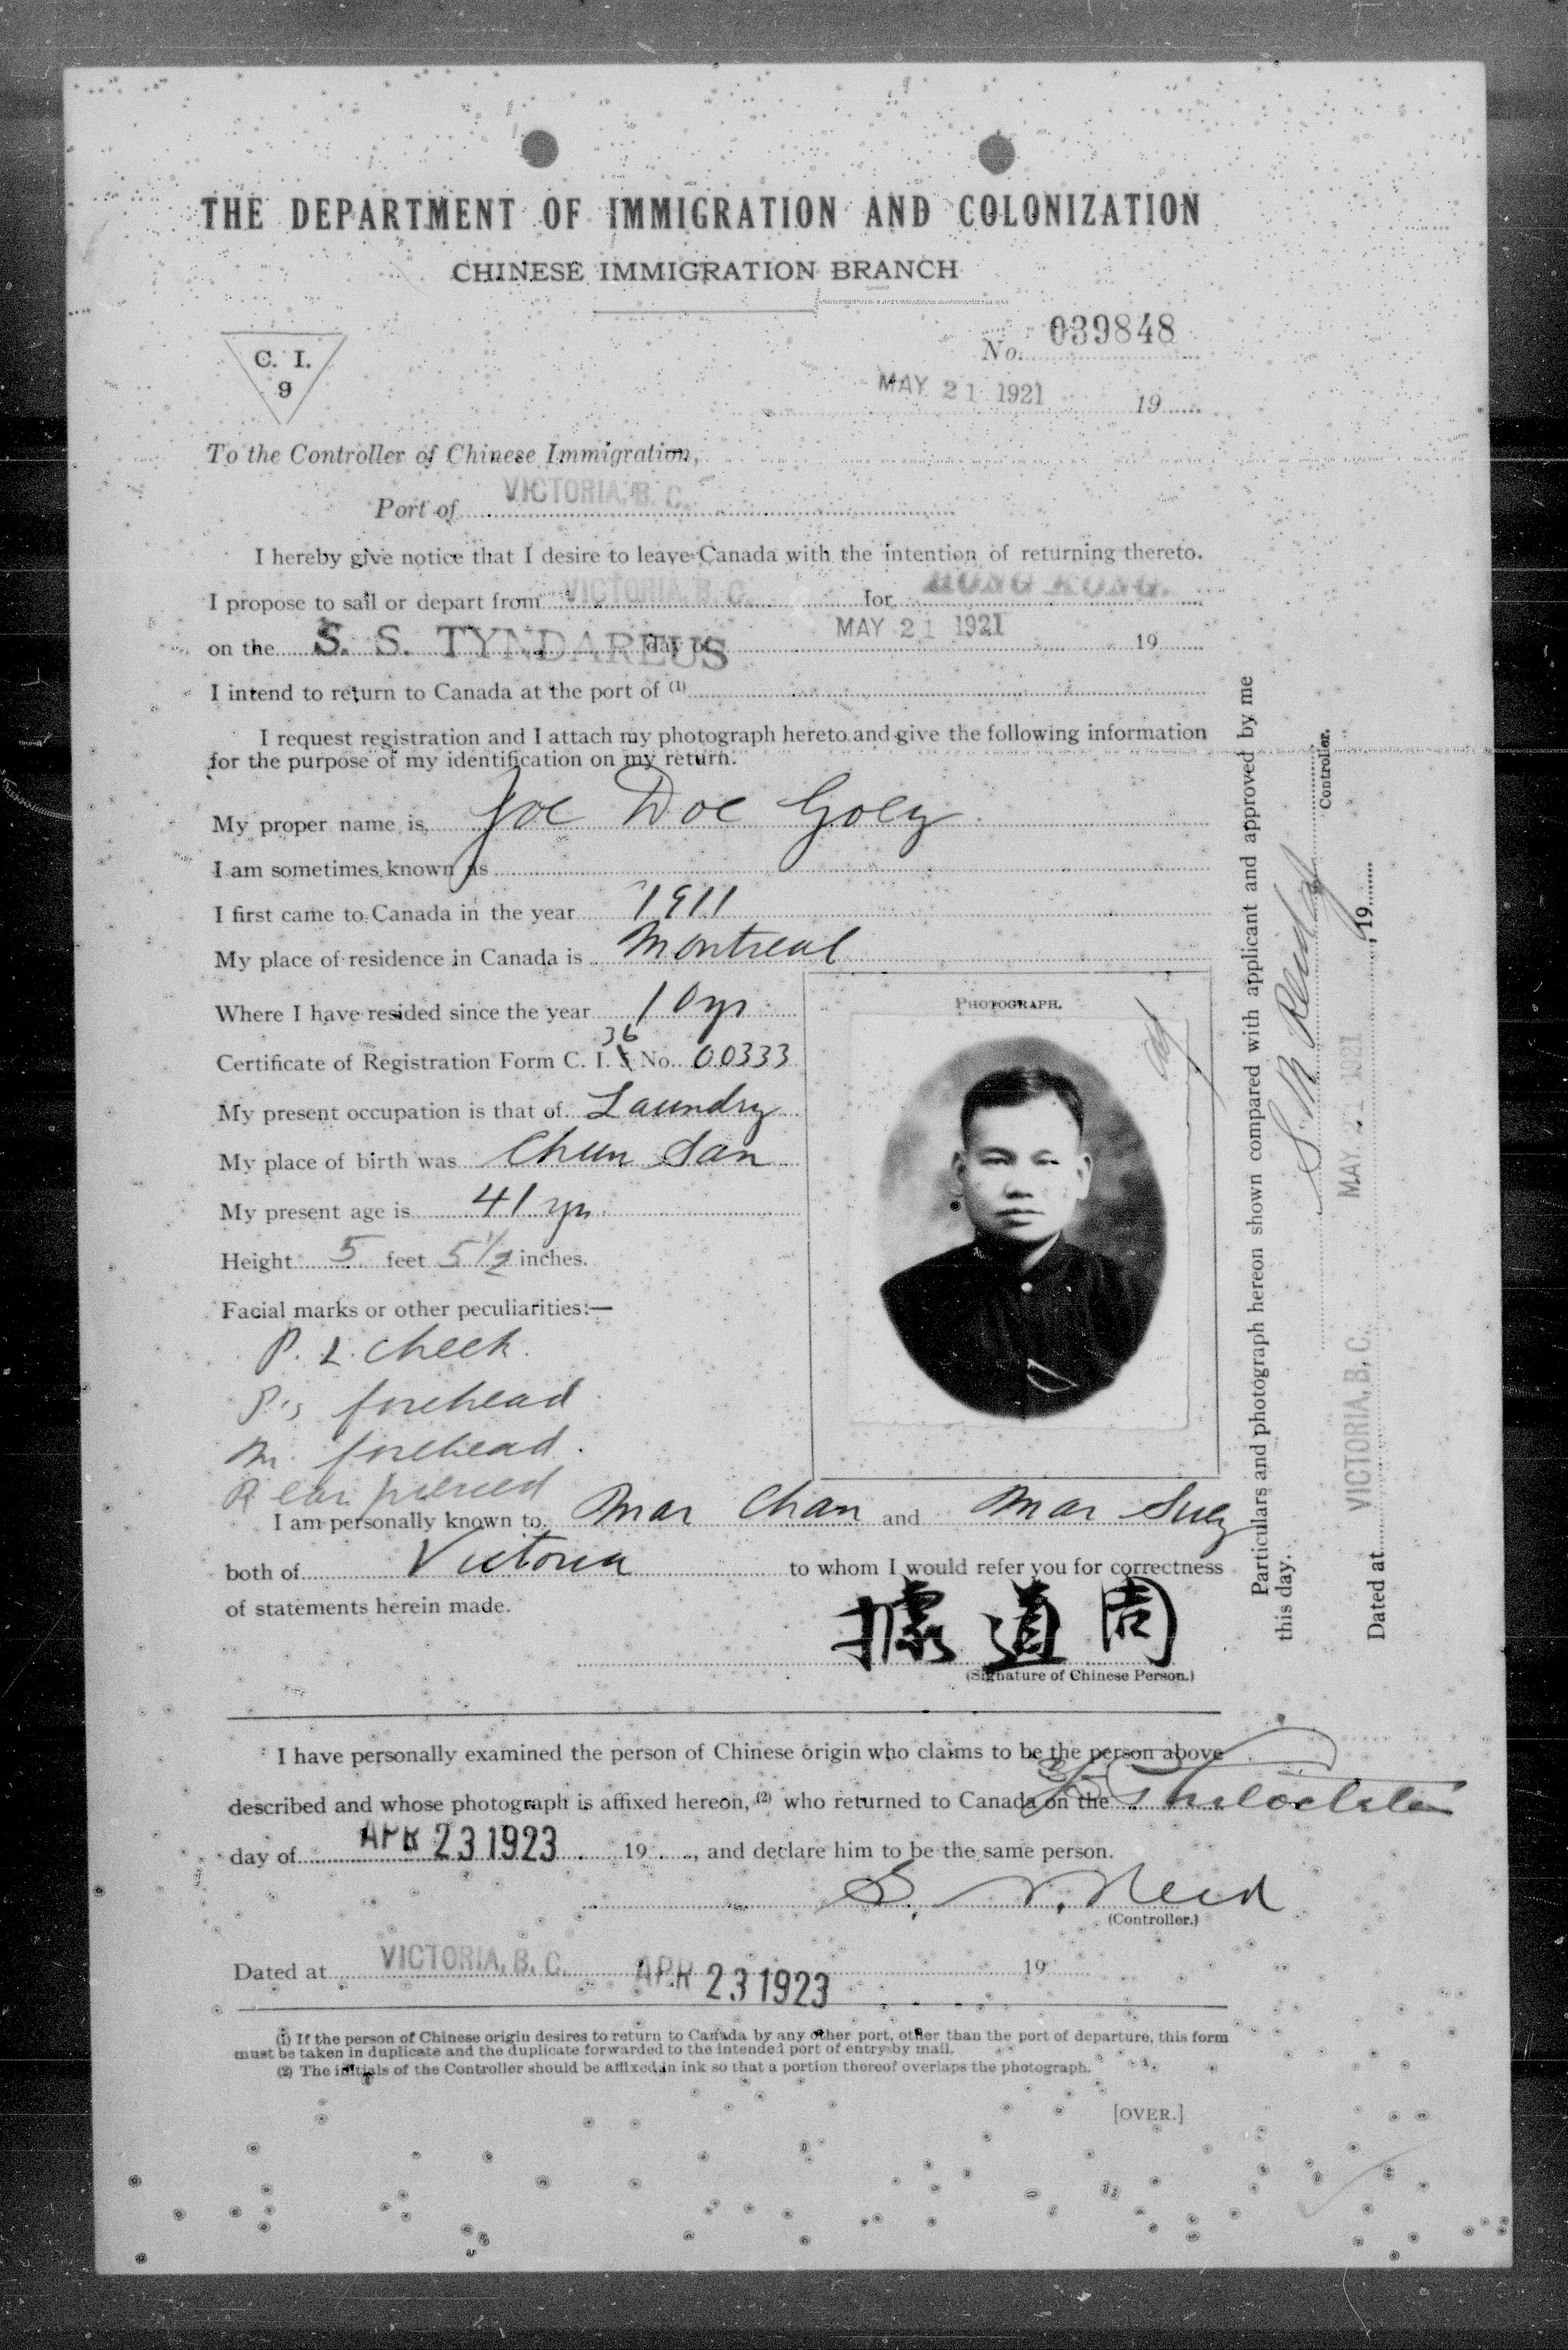 THE DEPARTMENT OF IMMIGRATION AND COLONIZATION
CHINESE IMMIGRATION BRANCH
C. I.
9
No. 039848
MAY 21 1921 19
To the Controller of Chinese Immigration,
Port of VICTORIA, B. C.
I hereby give notice that I desire to leave Canada with the intention of returning thereto.
I propose to sail or depart from VICTORIA, B. C. for HONG KONG.
on the S. S. TYNDAREUS day of MAY 21 1921 19
I intend to return to Canada at the port of (1)
I request registration and I attach my photograph hereto and give the following information
for the purpose of my identification on my return.
My proper name is Joe Doe Goey
I am sometimes known as
I first came to Canada in the year 1911
My place of residence in Canada is Montreal
Where I have resided since the year 10 yrs
Certificate of Registration Form C. I. 36 No. 00333
My present occupation is that of Laundry
My place of birth was Chun San
My present age is 41 yrs
Height 5 feet 5 1/2 inches.
Facial marks or other peculiarities:—
P. L. cheek.
P's forehead
M. forehead.
R ear pierced
PHOTOGRAPH.
I am personally known to Mar Chan and Mar Suey
both of Victoria to whom I would refer you for correctness
of statements herein made.
據道周
(Signature of Chinese Person.)
I have personally examined the person of Chinese origin who claims to be the person above
described and whose photograph is affixed hereon, (2) who returned to Canada on the
day of APR 23 1923 19 , and declare him to be the same person.
(Controller.)
Dated at VICTORIA, B. C. APR 23 1923 19
(1) If the person of Chinese origin desires to return to Canada by any other port, other than the port of departure, this form
must be taken in duplicate and the duplicate forwarded to the intended port of entry by mail.
(2) The initials of the Controller should be affixed in ink so that a portion thereof overlaps the photograph.
[OVER.]
Particulars and photograph hereon shown compared with applicant and approved by me
this day.
Controller.
Dated at VICTORIA, B. C. MAY 21 1921 , 19